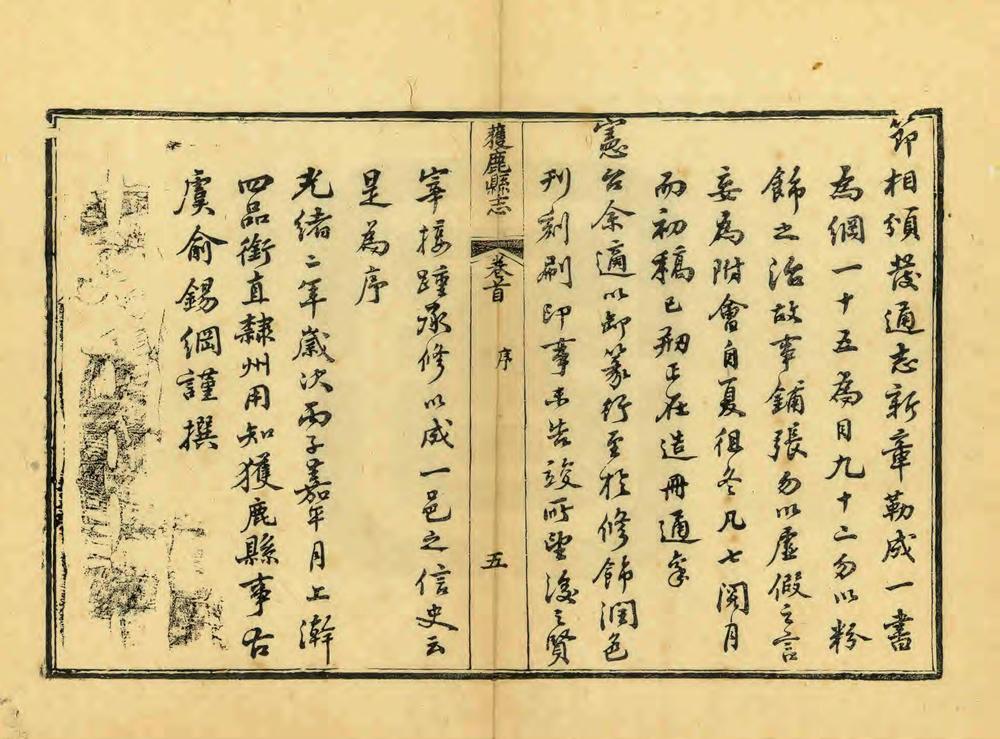 節相頒發通志新章勒成一書
為綱一十五為目九十二勿以粉
飾之治故事鋪張勿以虛假之言
妄為附會自夏徂冬凡七閱月
而初稿已刱正在造冊通稟
憲台余適以卸篆行至於修飾潤色
刊刻刷印事未告竣所望後之賢
獲鹿縣志
卷首
序
五
宰接踵承修以成一邑之信史云
是為序
光緒二年歲次丙子嘉平月上澣
四品銜直隸州用知獲鹿縣事古
虞俞錫綱謹撰